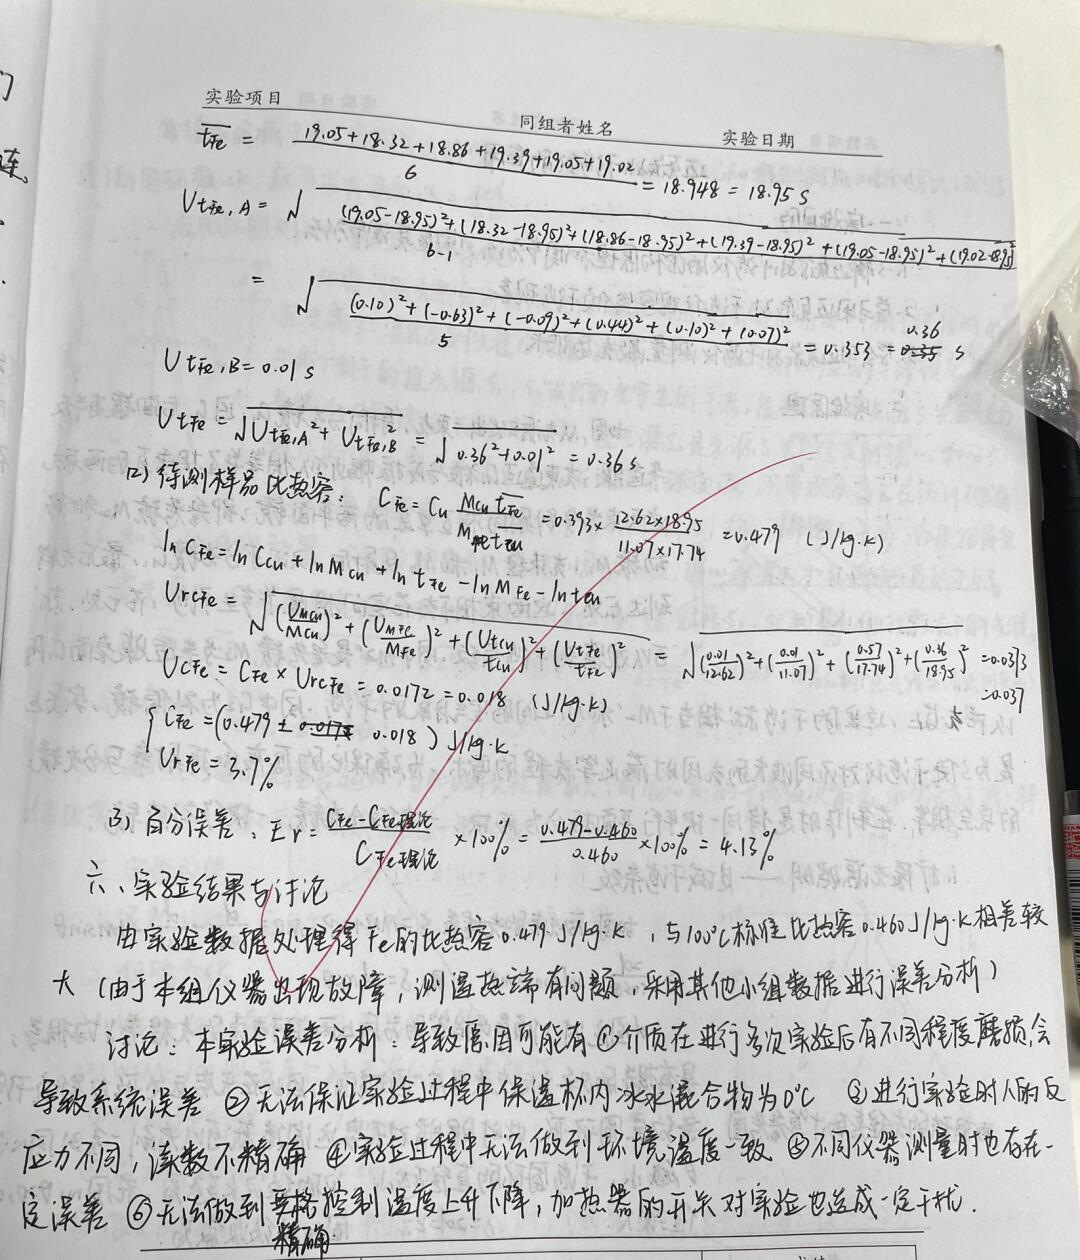 实验项目 同组者姓名 实验日期
t̄Fe = (19.05+18.32+18.86+19.39+19.05+19.02)/6 = 18.948 = 18.95 s
UtFe,A = √(((19.05-18.95)²+(18.32-18.95)²+(18.86-18.95)²+(19.39-18.95)²+(19.05-18.95)²+(19.02-18.95)²)/(6-1))
= √(((0.10)²+(-0.63)²+(-0.09)²+(0.44)²+(0.10)²+(0.07)²)/5) = 0.353 = 0.36 s
UtFe,B = 0.01 s
UtFe = √(UtFe,A²+UtFe,B²) = √(0.36²+0.01²) = 0.36 s
(2) 待测样品比热容: CFe = Cu MCu t̄Fe / MFe t̄Cu = 0.393× (12.62×18.95)/(11.07×17.74) = 0.479 (J/kg·K)
ln CFe = ln CCu + ln MCu + ln tFe - ln MFe - ln tCu
UrCFe = √((UMCu/MCu)²+(UMFe/MFe)²+(UtCu/tCu)²+(UtFe/tFe)²) = √((0.01/12.62)²+(0.01/11.07)²+(0.57/17.74)²+(0.36/18.95)²) = 0.0373
=0.037
UCFe = CFe × UrCFe = 0.0172 = 0.018 (J/kg·K)
{ CFe = (0.479 ± 0.018) J/kg·K
UrFe = 3.7%
(3) 百分误差: Er = (CFe-CFe理论)/CFe理论 ×100% = (0.479-0.460)/0.460 ×100% = 4.13%
六、实验结果与讨论
由实验数据处理得Fe的比热容0.479 J/kg·k，与100°C标准比热容0.460J/kg·k相差较
大（由于本组仪器出现故障，测温热端有问题，采用其他小组数据进行误差分析）
讨论：本实验误差分析：导致原因可能有①介质在进行多次实验后有不同程度磨损，会
导致系统误差 ②无法保证实验过程中保温杯内冰水混合物为0°C ③进行实验时人的反
应力不同，读数不精确 ④实验过程中无法做到环境温度一致 ⑤不同仪器测量时也存在一
定误差 ⑥无法做到严格控制温度上升下降，加热器的开关对实验也造成一定干扰.
精确